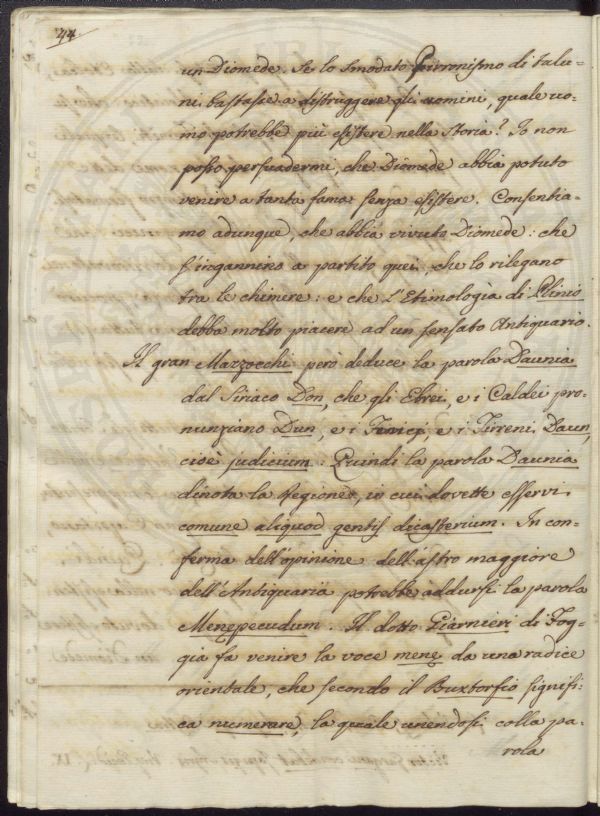 44
un Diomede. Se lo smodato Pirronismo di talu-
ni bastasse a distruggere gli uomini, quale uo-
mo potrebbe più esistere nella Storia? Io non
posso persuadermi, che Diomede abbia potuto
venire a tanta fama senza esistere. Consentia-
mo adunque, che abbia vivuto Diomede: che
s'ingannino a partito quei, che lo rilegano
tra le chimere: e che l'Etimologia di Plinio
debba molto piacere ad un sensato Antiquario.
Il gran Mazzocchi però deduce la parola Daunia
dal Siriaco Don, che gli Ebrei, e i Caldei pro-
nunziano Dun, e i Fenicj, e i Tirreni Daun,
cioè judicium. Quindi la parola Daunia
dinota la Regione, in cui dovette esservi
comune aliquod gentis dicasterium. In con-
ferma dell'opinione dell'astro maggiore
dell'Antiquaria potrebbe addursi la parola
Menepecudum. Il dotto Giarnieri di Fog-
gia fa venire la voce mene da una radice
orientale, che secondo il Buxtorfio signifi-
ca numerare, la quale unendosi colla pa-
rola